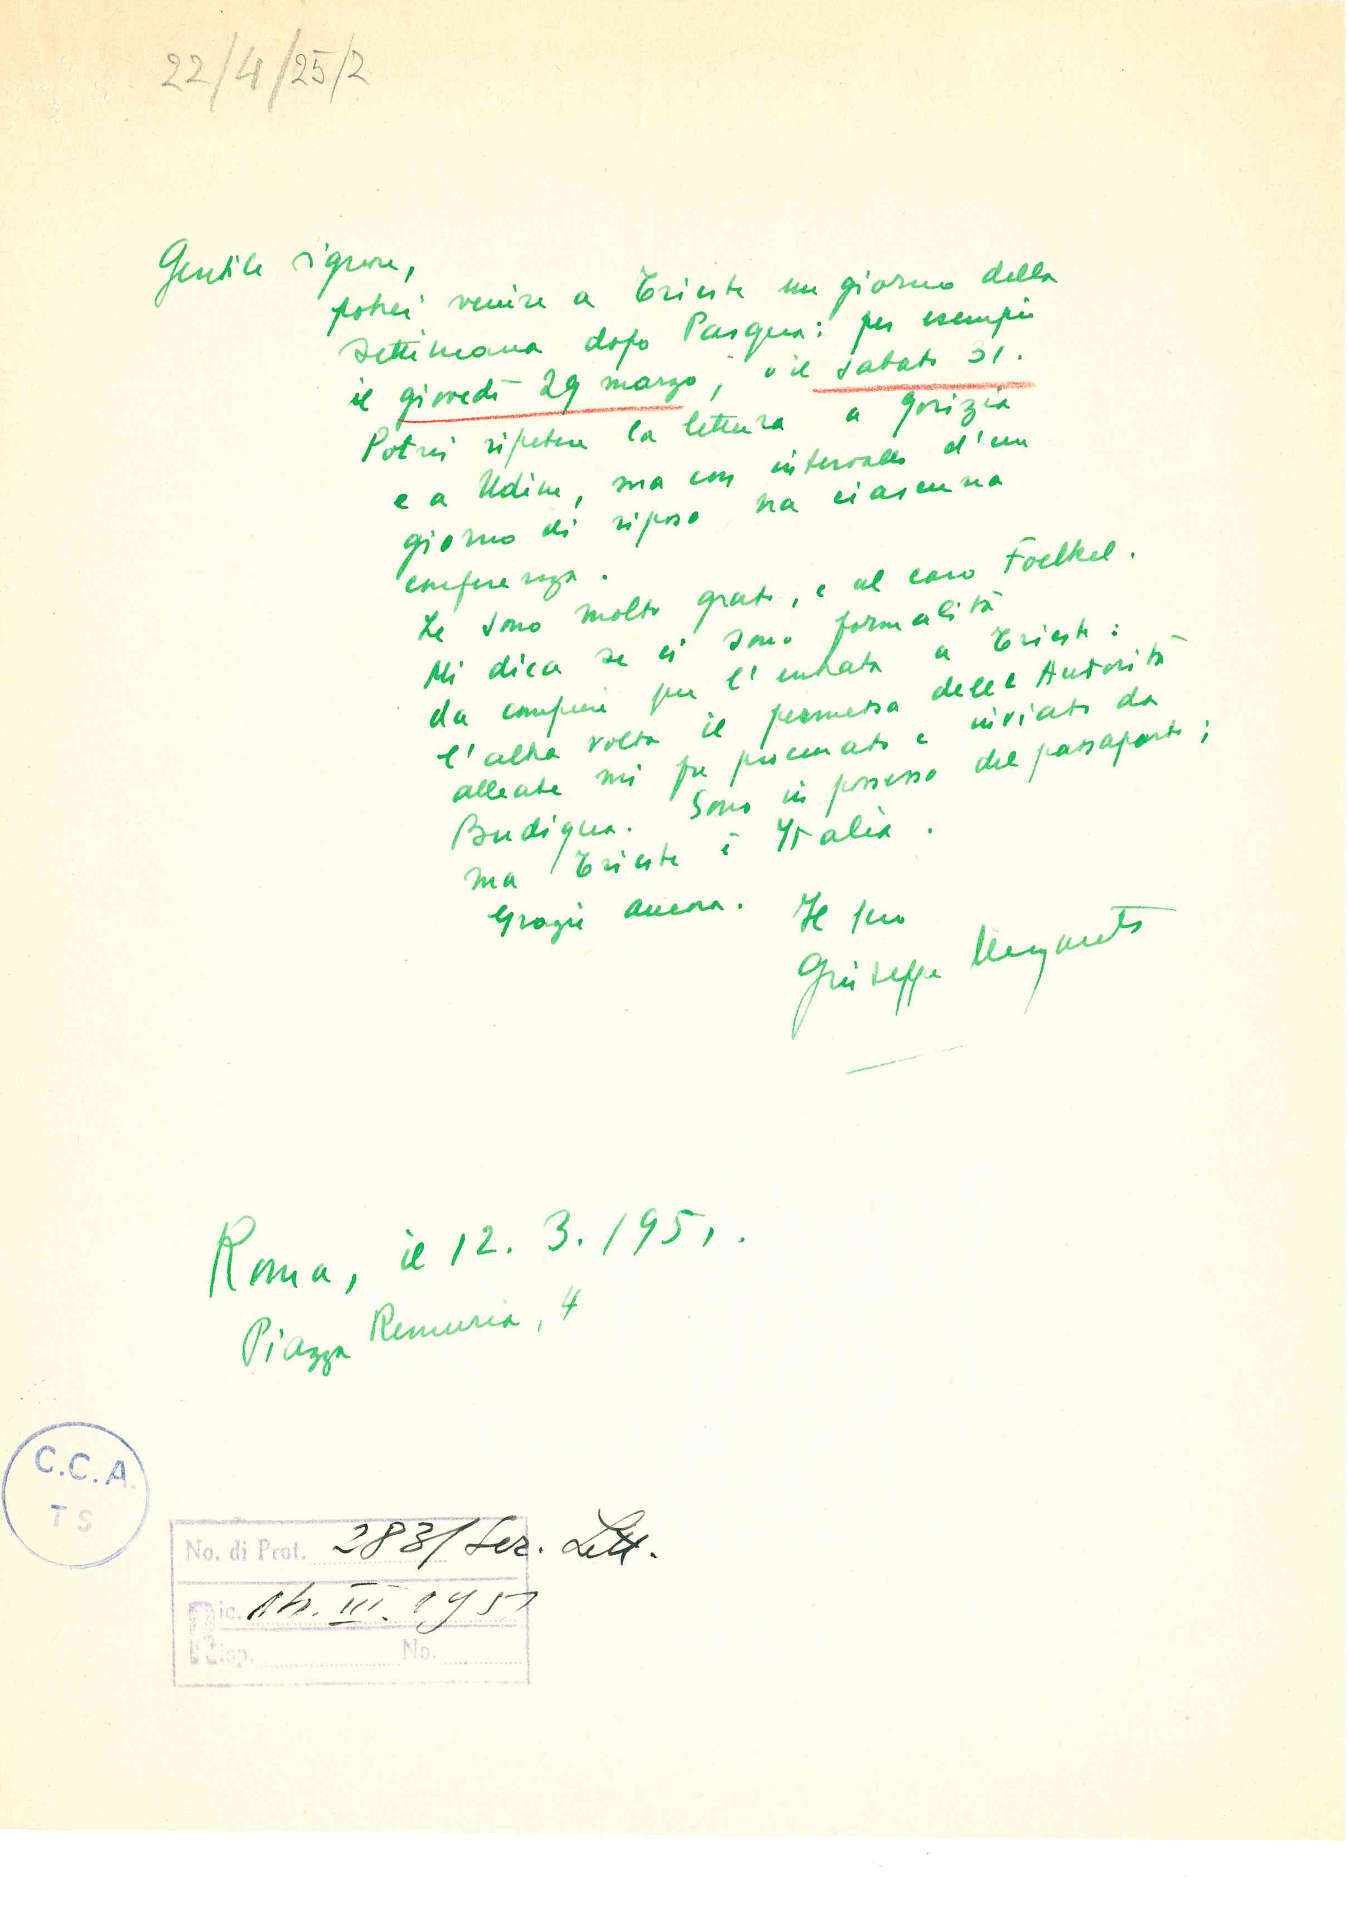 22/4/25/2
Gentile signore,
potrei venire a Trieste un giorno della
settimana dopo Pasqua: per esempio
il giovedì 29 marzo, o il sabato 31.
Potrei ripetere la lettura a Gorizia
e a Udine, ma con intervallo d'un
giorno di riposo tra ciascuna
conferenza.
Le sono molto grato, e al caro Foelkel.
Mi dica se ci sono formalità
da compiere per l'entrata a Trieste:
l'altra volta il permesso delle Autorità
alleate mi fu procurato e inviato da
Budigna. Sono in possesso del passaporto;
ma Trieste è Italia.
Grazie ancora. Il suo
Giuseppe Ungaretti
Roma, il 12. 3. 1951.
Piazza Remuria, 4
C.C.A.
TS
No. di Prot. 283/Sez. Lett.
Ric. 14. III. 1951
Risp. No.